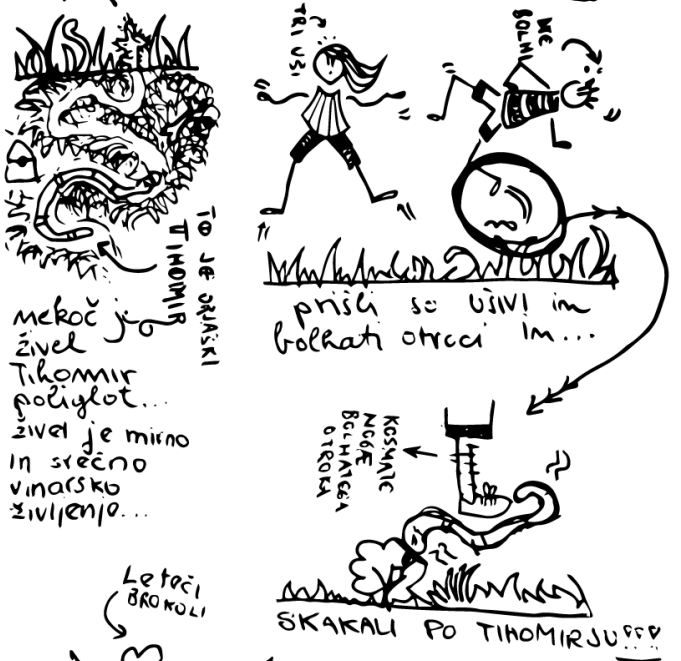 TO JE ORJAŠKI
TIHOMIR
nekoč je
živel
Tihomir
poliglot...
živel je mirno
in srečno
vinarsko
življenje...
TRI UŠI
NE
BOLHI
prišli so UŠIVI in
bolhati otroci In...
KOSMATE
NOGE
BOLHATEGA
OTROKA
SKAKALI PO TIHOMIRJU!!!
Leteči
BROKOLI